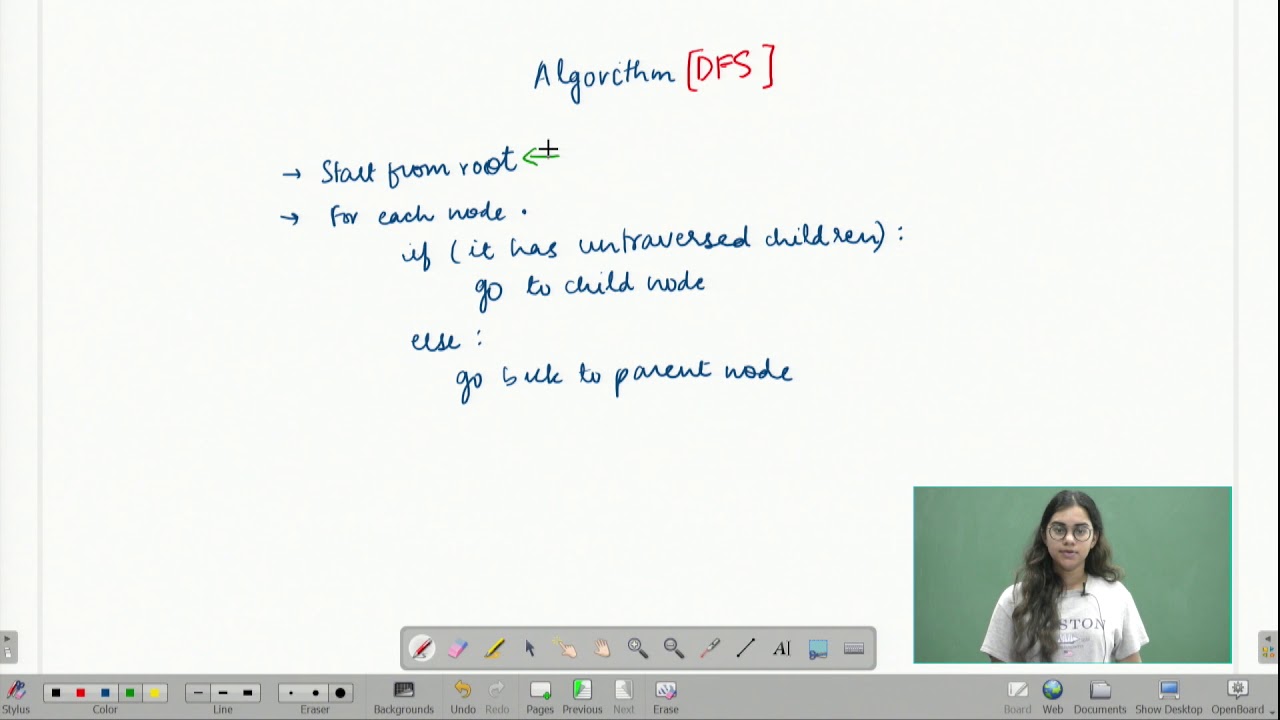 Algorithm [DFS]
→ Start from root ⇐
→ For each node .
if (it has untraversed children) :
go to child node
else :
go back to parent node
STON
Stylus
Color
Line
Eraser
Backgrounds
Undo
Redo
Pages
Previous
Next
Erase
Board
Web
Documents
Show Desktop
OpenBoard